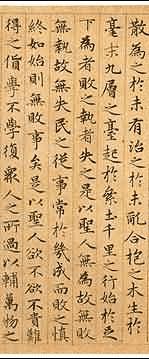 散為之於未有治之於未亂合抱之木生於
毫末九層之臺起於累土千里之行始於足
下為者敗之執者失之是以聖人無為故無敗
無執故無失民之從事常於幾成而敗之慎
終如始則無敗事矣是以聖人欲不欲不貴難
得之貨學不學復眾人之所過以輔萬物之